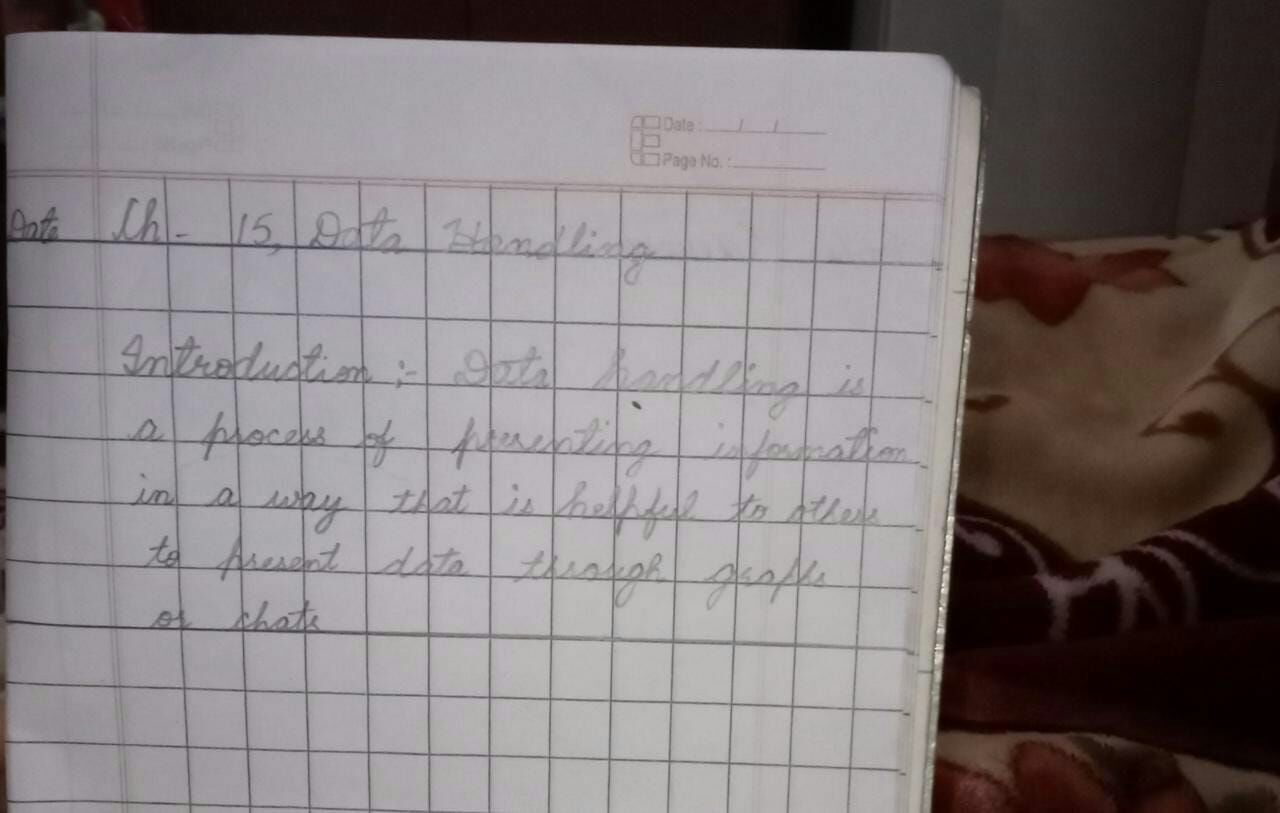 Date : / /
Page No. :
Date Ch - 15, Data Handling
Introduction :- Data handling is
a process of presenting information
in a way that is helpful to others
to present data through graphs
or chats